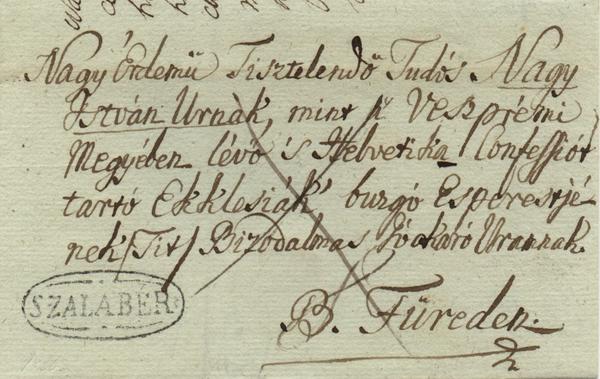 Nagy Érdemű Tisztelendő Tudós Nagy
István Urnak, mint a' Veszprémi
Megyében lévő 's Helvetika Confessiót
tartó Ekklesiák' buzgó Esperestjé-
nek /Tit/ Bizodalmas Jóakaró Urannak.
SZALABÉR
B. Füreden.